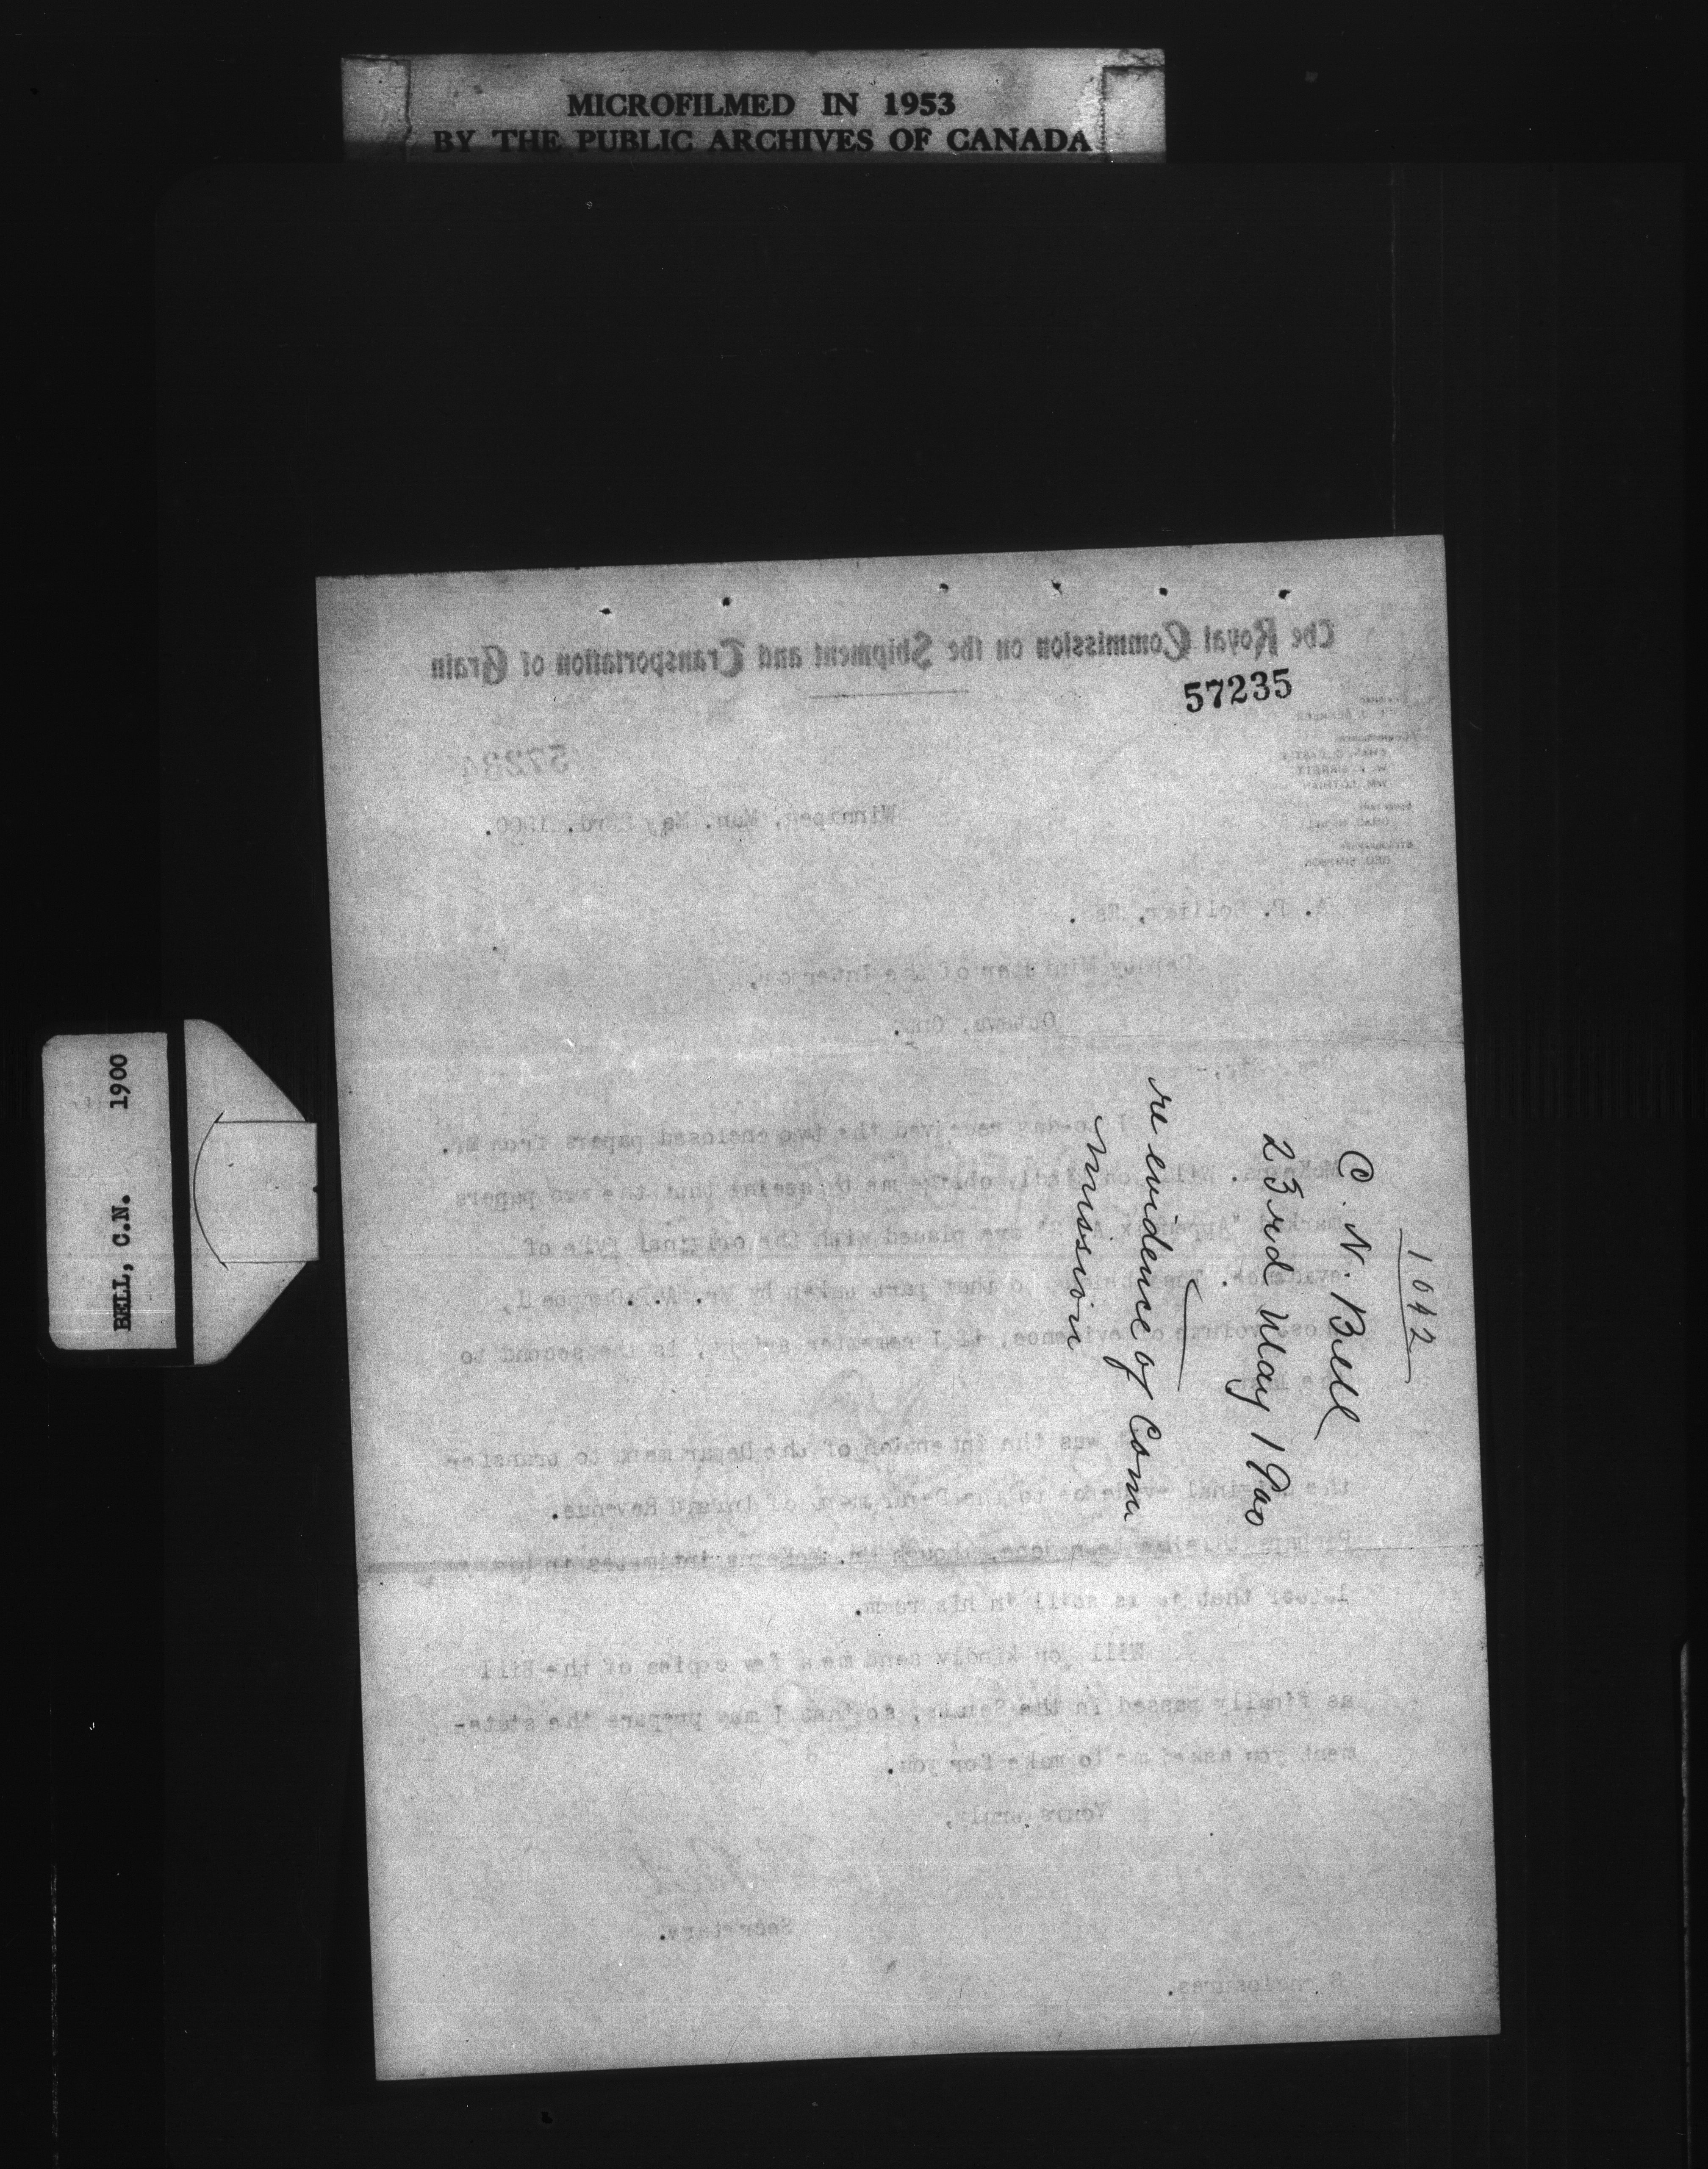 MICROFILMED IN 1953
BY THE PUBLIC ARCHIVES OF CANADA
BELL, C.N. 1900
The Royal Commission on the Shipment and Transportation of Grain
57235
57234
Winnipeg, Man. May 23rd, 1900.
Deputy Minister of the Interior,
Ottawa, Ont.
I to-day received the two enclosed papers from Mr.
McKenna. Will you kindly oblige me by seeing that the two papers
are placed with the original file of
evidence. to that part taken by Mr.
volume of evidence, if I remember aright, is the second to
was the intention of the Department to transfer
the original evidence to the Department of Inland Revenue.
Perhaps this has been done, though Mr. McKenna intimates in his
letter that it is still in his room.
Will you kindly send me a few copies of the Bill
as finally passed in the Senate, so that I may prepare the state-
ment you asked me to make for you.
Yours truly,
Secretary.
enclosures.
1042
C. N. Bell
23rd May 1900
re evidence of Com
mission